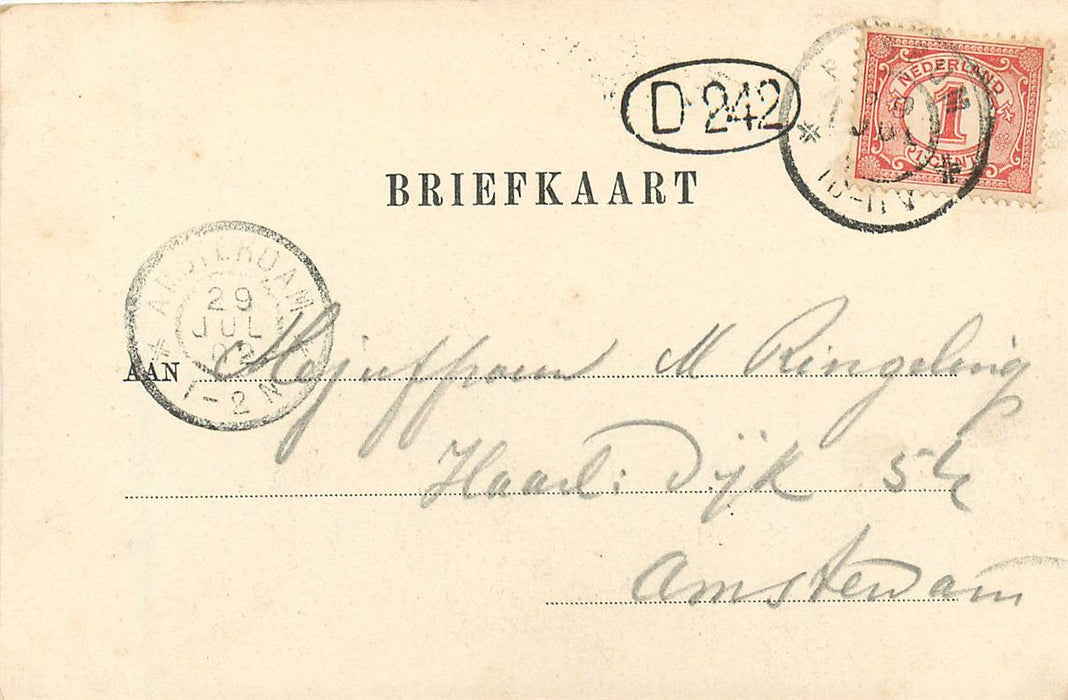 D 242
NEDERLAND
1
CENT
10-11 
BRIEFKAART
AMSTERDAM
29
JUL
1-2 N
AAN Mejuffrouw M Ringeling
Haarl: Dijk
Amsterdam